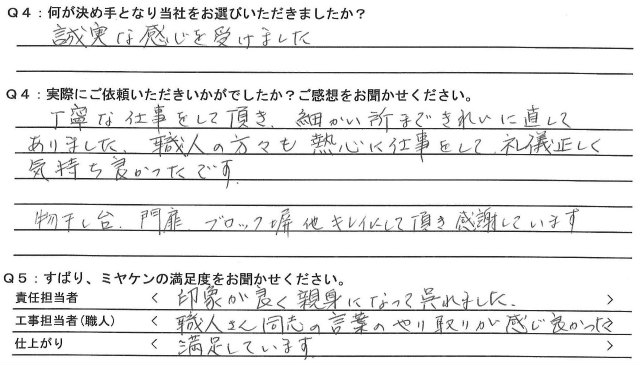 Q4：何が決め手となり当社をお選びいただきましたか？
誠実な感じを受けました
Q4：実際にご依頼いただきいかがでしたか？ご感想をお聞かせください。
丁寧な仕事をして頂き、細かい所まできれいに直して
ありました。職人の方々も熱心に仕事をして、礼儀正しく
気持ち良かったです。
物干し台、門扉、ブロック塀他キレイにして頂き感謝しています
Q5：ずばり、ミヤケンの満足度をお聞かせください。
責任担当者 < 印象が良く親身になって呉れました. >
工事担当者(職人) < 職人さん同志の言葉のやり取りが感じ良かった >
仕上がり < 満足しています。 >